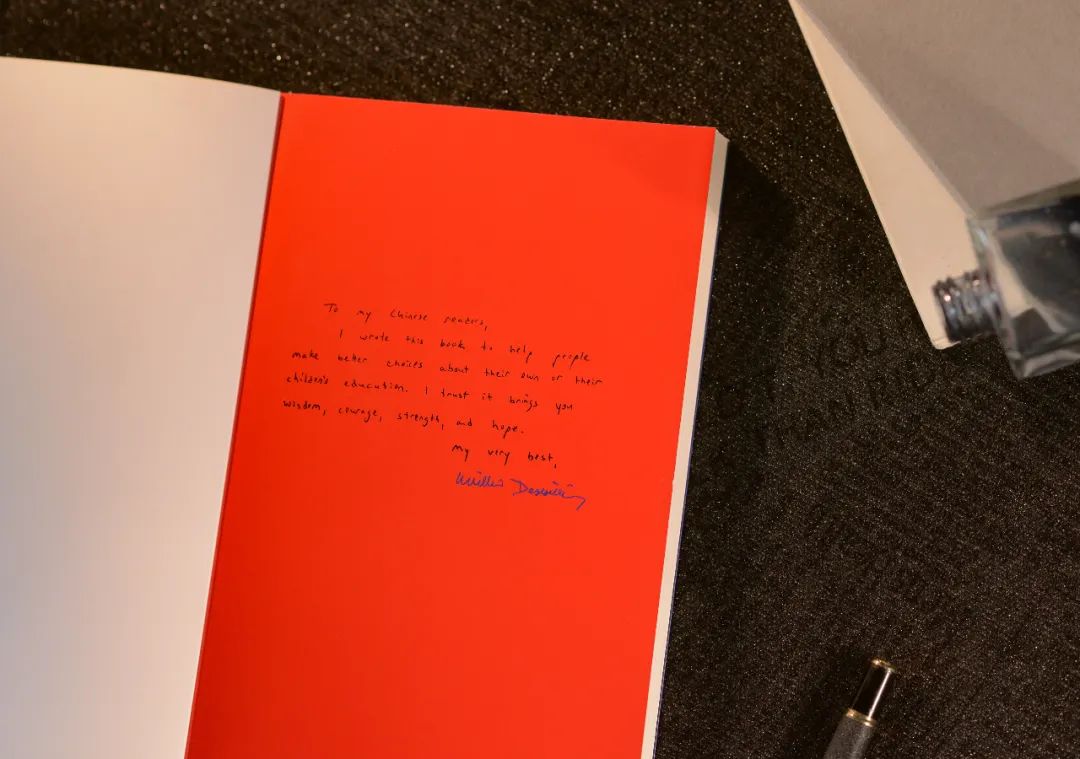 To my Chinese readers,
I wrote this book to help people
make better choices about their own or their
children's education. I trust it brings you
wisdom, courage, strength, and hope.
My very best,
William Deresiewicz